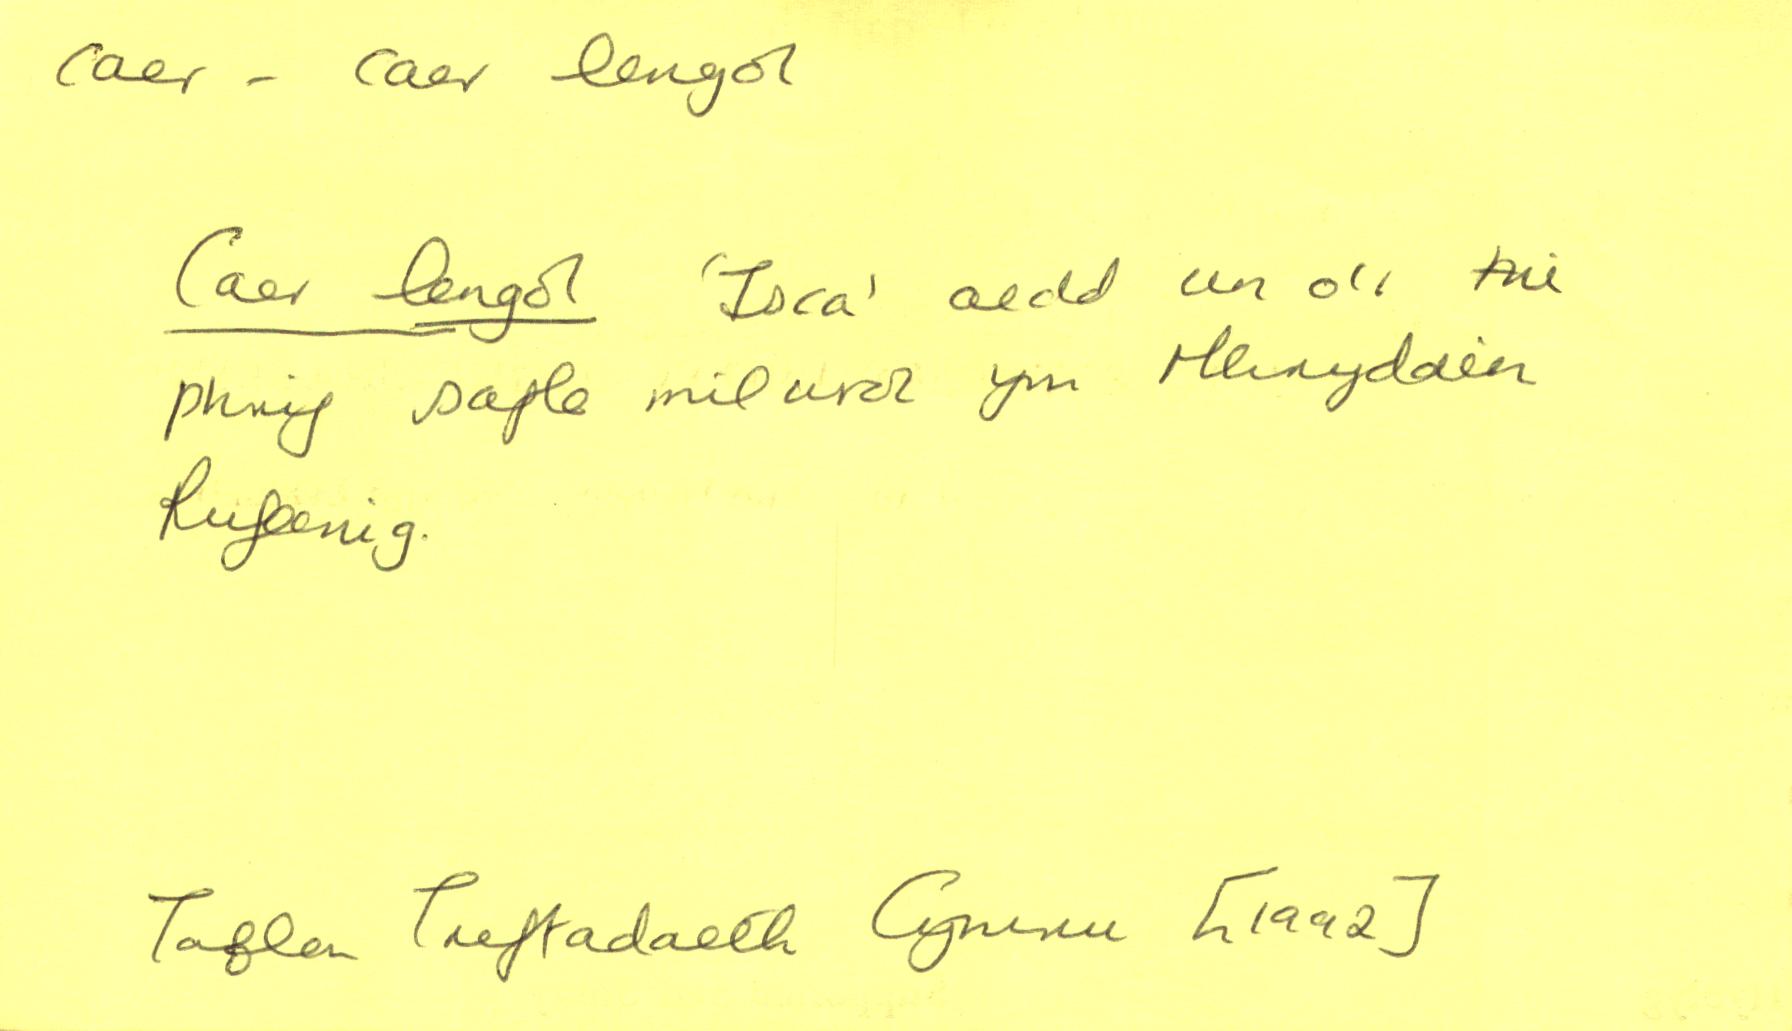 caer - caer lengol
Caer lengol 'Isca' oedd un o'r tri
phrif safle milwrol ym Mhrydain
Rufeinig.
Taflen Treftadaeth Cymru [1992]